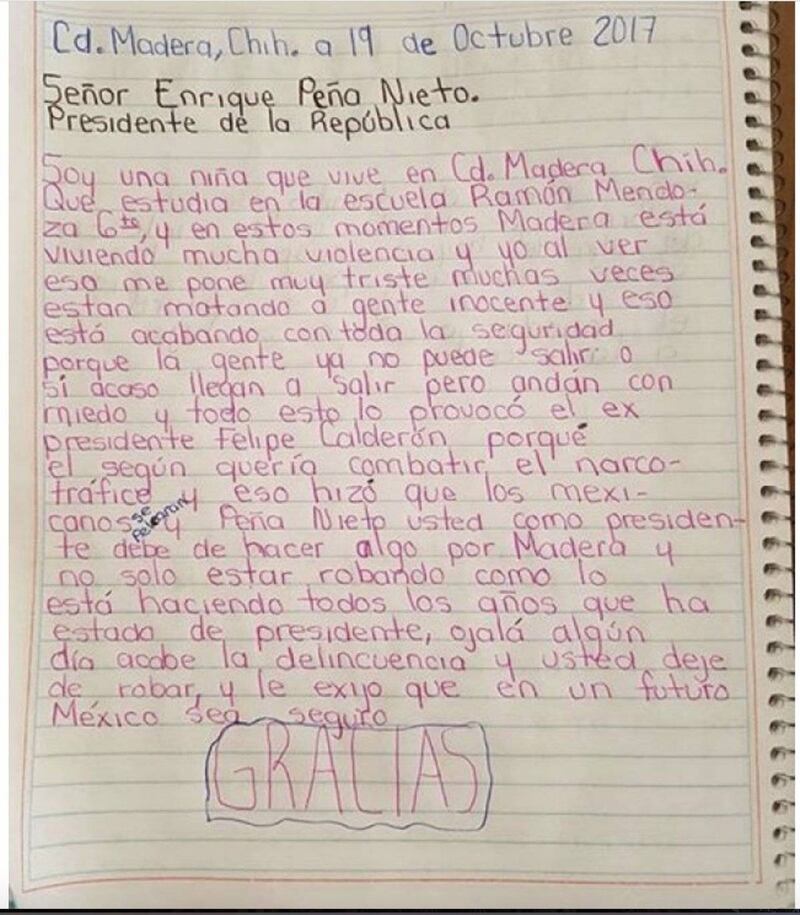 Cd. Madera, Chih. a 19 de Octubre 2017
Señor Enrique Peña Nieto.
Presidente de la República
Soy una niña que vive en Cd. Madera Chih.
Que estudia en la escuela Ramón Mendo-
za 6to, y en estos momentos Madera está
viviendo mucha violencia y yo al ver
eso me pone muy triste muchas veces
estan matando a gente inocente y eso
está acabando con toda la seguridad
porque la gente ya no puede salir o
si acaso llegan a salir pero andán con
miedo y todo esto lo provocó el ex
presidente Felipe Calderón porqué
el según quería combatir el narco-
tráfice y eso hizó que los mexi-
canos se pelearan y Peña Nieto usted como presiden-
te debe de hacer algo por Madera y
no solo estar robando como lo
está haciendo todos los años que ha
estado de presidente, ojalá algún
día acabe la delincuencia y usted deje
de robar, y le exijo que en un futuro
México sea seguro
GRACIAS